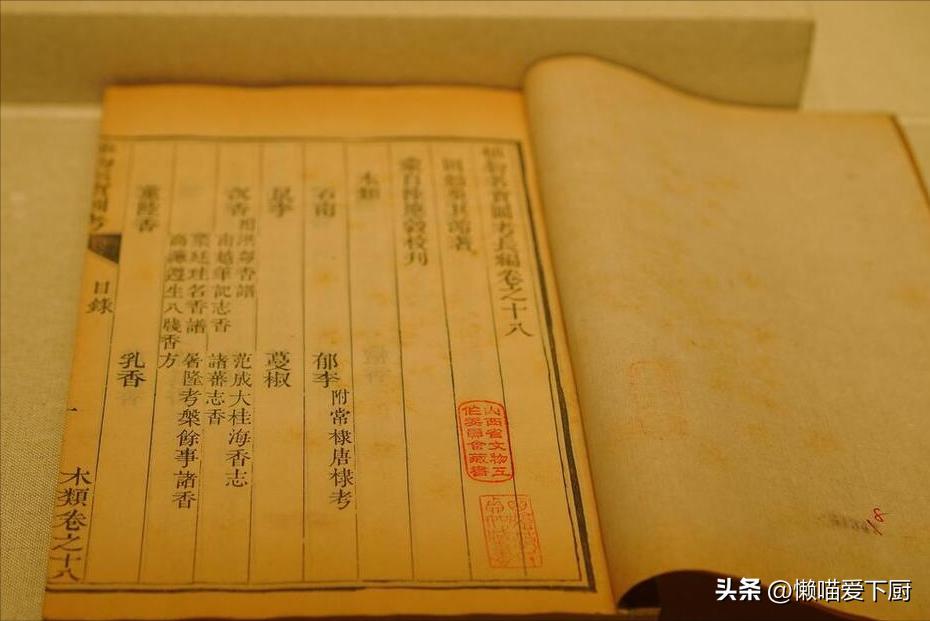 植物名實圖考長編卷之十八
固始吳其濬著
蒙自陸應穀校刊
木類
石南
郁李附常棣唐棣考
蔓椒
沉香附洪芻香譜
范成大桂海香志
南越筆記志香
諸蕃志香
葉廷珪名香譜
屠隆考槃餘事諸香
高濂遵生八牋香方
薰陸香
乳香
目錄
木類卷之十八
山西省文物工
作委員會藏書
8
头条 @懒喵爱下厨